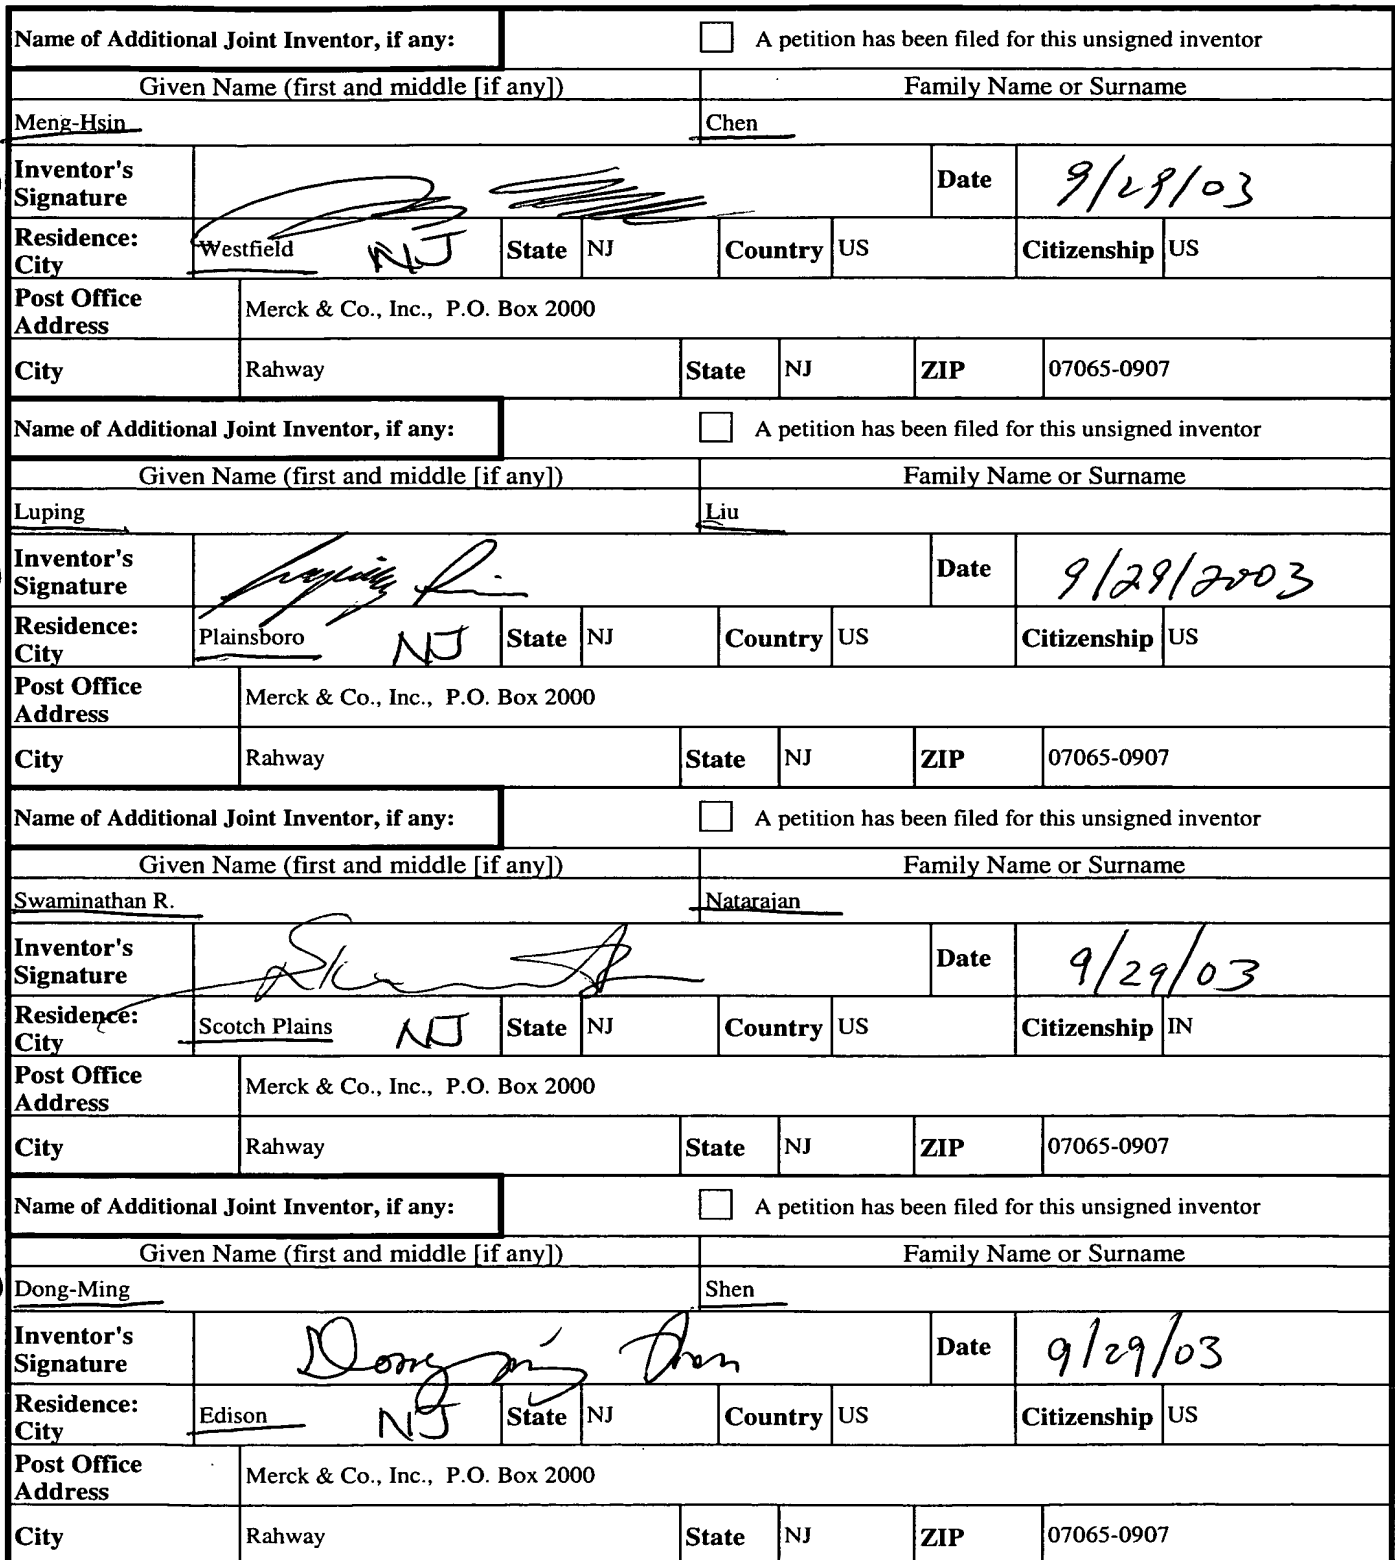 Name of Additional Joint Inventor, if any: A petition has been filed for this unsigned inventor
Given Name (first and middle [if any]) Family Name or Surname
Meng-Hsin Chen
Inventor's Signature Date 9/29/03
Residence: City Westfield NJ State NJ Country US Citizenship US
Post Office Address Merck & Co., Inc., P.O. Box 2000
City Rahway State NJ ZIP 07065-0907
Name of Additional Joint Inventor, if any: A petition has been filed for this unsigned inventor
Given Name (first and middle [if any]) Family Name or Surname
Luping Liu
Inventor's Signature Date 9/29/2003
Residence: City Plainsboro NJ State NJ Country US Citizenship US
Post Office Address Merck & Co., Inc., P.O. Box 2000
City Rahway State NJ ZIP 07065-0907
Name of Additional Joint Inventor, if any: A petition has been filed for this unsigned inventor
Given Name (first and middle [if any]) Family Name or Surname
Swaminathan R. Natarajan
Inventor's Signature Date 9/29/03
Residence: City Scotch Plains NJ State NJ Country US Citizenship IN
Post Office Address Merck & Co., Inc., P.O. Box 2000
City Rahway State NJ ZIP 07065-0907
Name of Additional Joint Inventor, if any: A petition has been filed for this unsigned inventor
Given Name (first and middle [if any]) Family Name or Surname
Dong-Ming Shen
Inventor's Signature Dong-Ming Shen Date 9/29/03
Residence: City Edison NJ State NJ Country US Citizenship US
Post Office Address Merck & Co., Inc., P.O. Box 2000
City Rahway State NJ ZIP 07065-0907